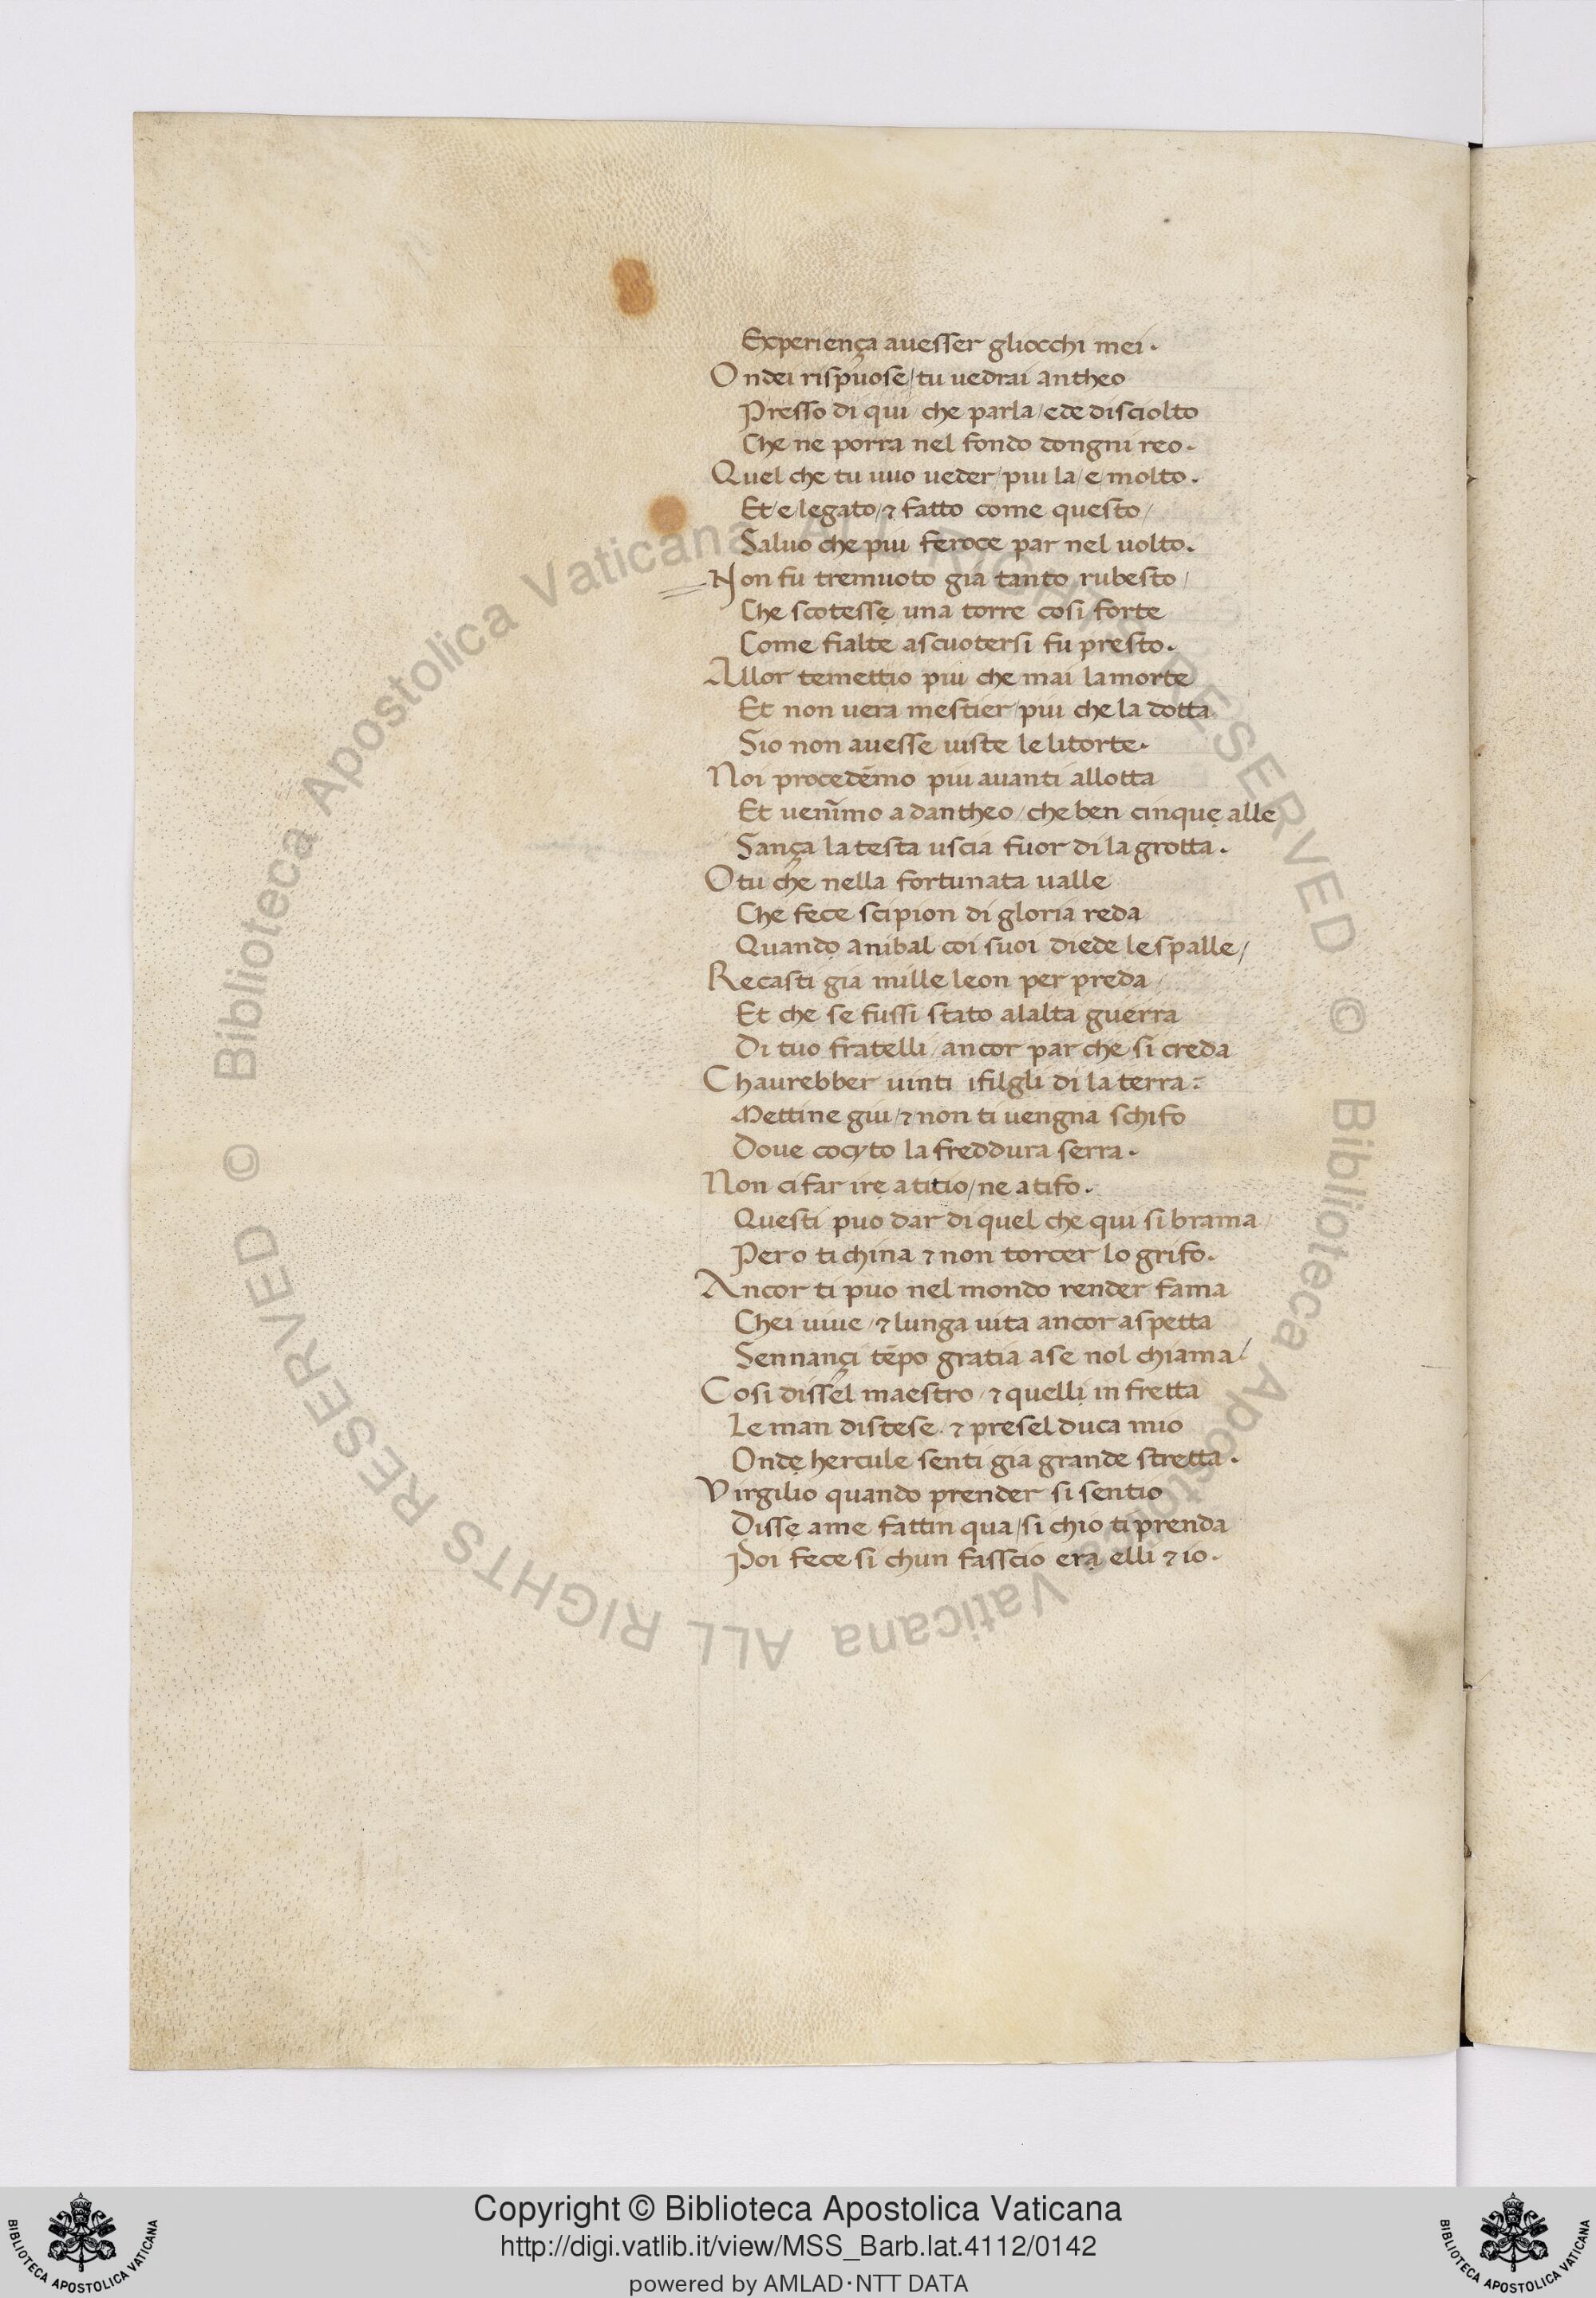 Experiença auesser gliocchi mei.
Ondei rispuose/tu uedrai antheo
Presso di qui/che parla/ede disciolto
Che ne porra nel fondo dongni reo.
Quel che tu uuo ueder/piu la/e/molto.
Et/e/legato/⁊ fatto come questo/
Saluo che piu feroce par nel uolto.
Non fu tremuoto gia tanto rubesto/
Che scotessẹ una torre cosi forte
Come fialte ascuotersi fu presto.
Allor temettio piu che mai lamorte
Et non uera mestier/piu che la dotta
Sio non auesse uiste le litorte.
Noi procedẽmo piu auanti allotta
Et uenim̃o a dantheo/che ben cinquẹ alle
Sança la testa uscia fuor di la grotta.
Otu che nella fortunata ualle
Che fece scipion di gloria reda
Quandọ anibal coi suoi diede le spalle/
Recasti gia mille leon per preda/
Et che se fussi stato alalta guerra
Di tuo fratelli/ancor par che si creda
Chaurebber uinti ifilgli di la terra:
Mettine giu/⁊ non ti uengna schifo
Doue cocyto la freddura serra.
Non ci far irẹ a titio/ne a tifo.
Questi puo dar di quel che qui si brama/
Pero ti china ⁊ non torcer lo grifo.
Ancor ti puo nel mondo render fama
Chei uiue/⁊ lunga uita ancor aspetta
Sennançi tẽpo gratia a se nol chiama/
Cosi dissel maestro/⁊ quellị in fretta
Le man distese. ⁊ presel duca mio
Ondẹ hercule senti gia grande stretta.
Virgilio quando prender si sentio
Dissẹ ame fattin qua/si chio ti prenda
Poi fece si chun fasscio erạ elli ⁊ io.
© Biblioteca Apostolica Vaticana ALL RIGHTS RESERVED © Biblioteca Apostolica Vaticana ALL RIGHTS RESERVED
Copyright © Biblioteca Apostolica Vaticana
http://digi.vatlib.it/view/MSS_Barb.lat.4112/0142
powered by AMLAD·NTT DATA
BIBLIOTECA APOSTOLICA VATICANA
BIBLIOTECA APOSTOLICA VATICANA